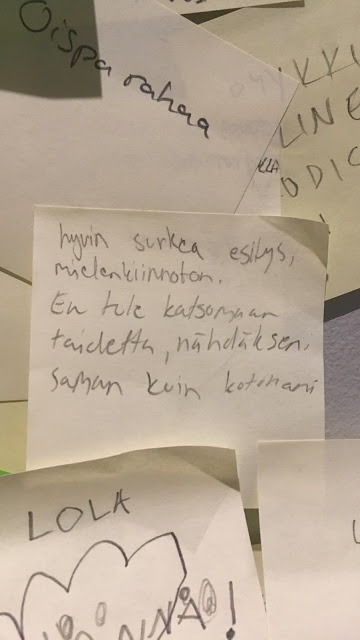 Oispa rahaa
KKI
LINE
ODIC
hyvin surkea esitys,
mielenkiinnoton.
En tule katsomaan
taidetta, nähdäkseni
saman kuin kotonani
LOLA